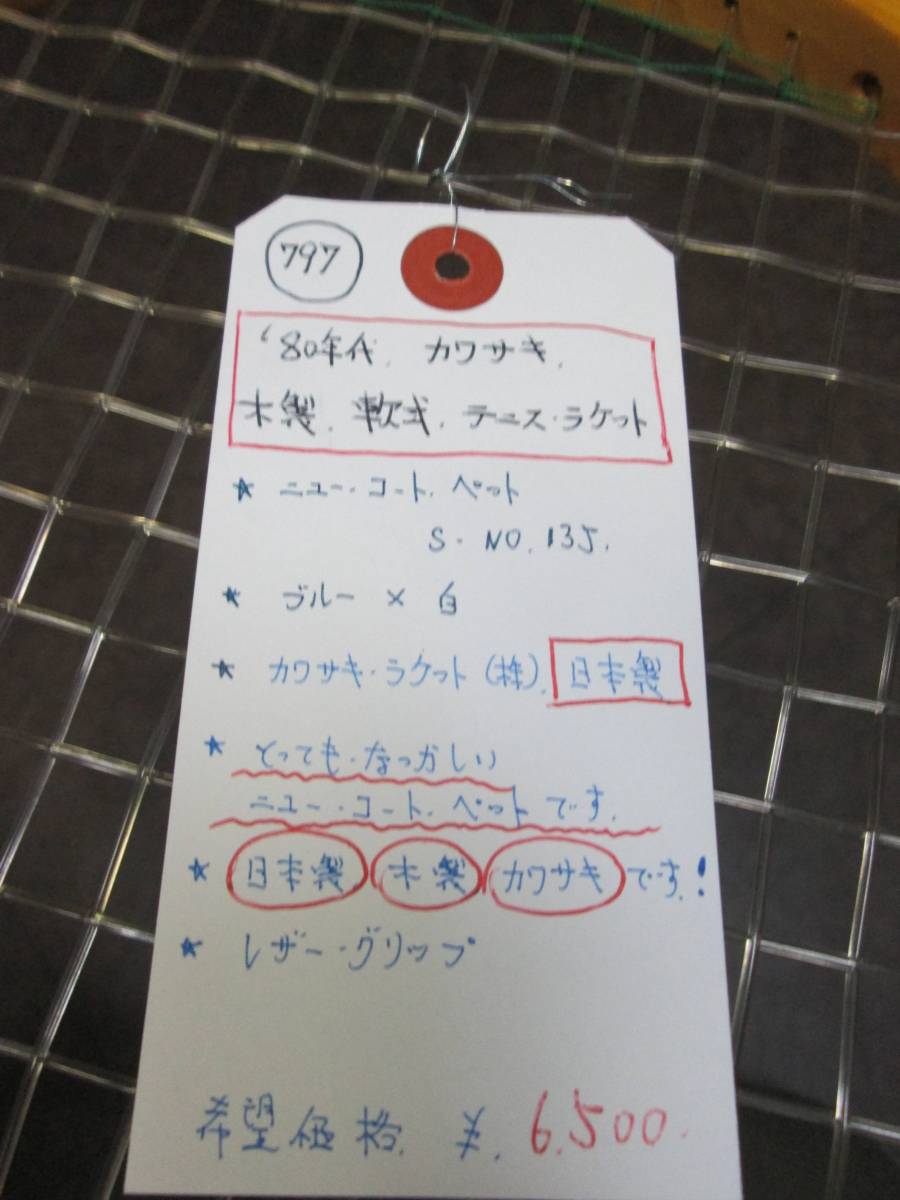 797
'80年代. カワサキ.
木製. 軟式. テニス・ラケット
★ ニュー・コート・ペット
S・NO.135.
★ ブルー × 白
★ カワサキ・ラケット(株). 日本製
★ とっても・なつかしい
ニュー・コート・ペットです.
★ 日本製 木製 カワサキです.!
★ レザー・グリップ
希望価格. ¥. 6.500.